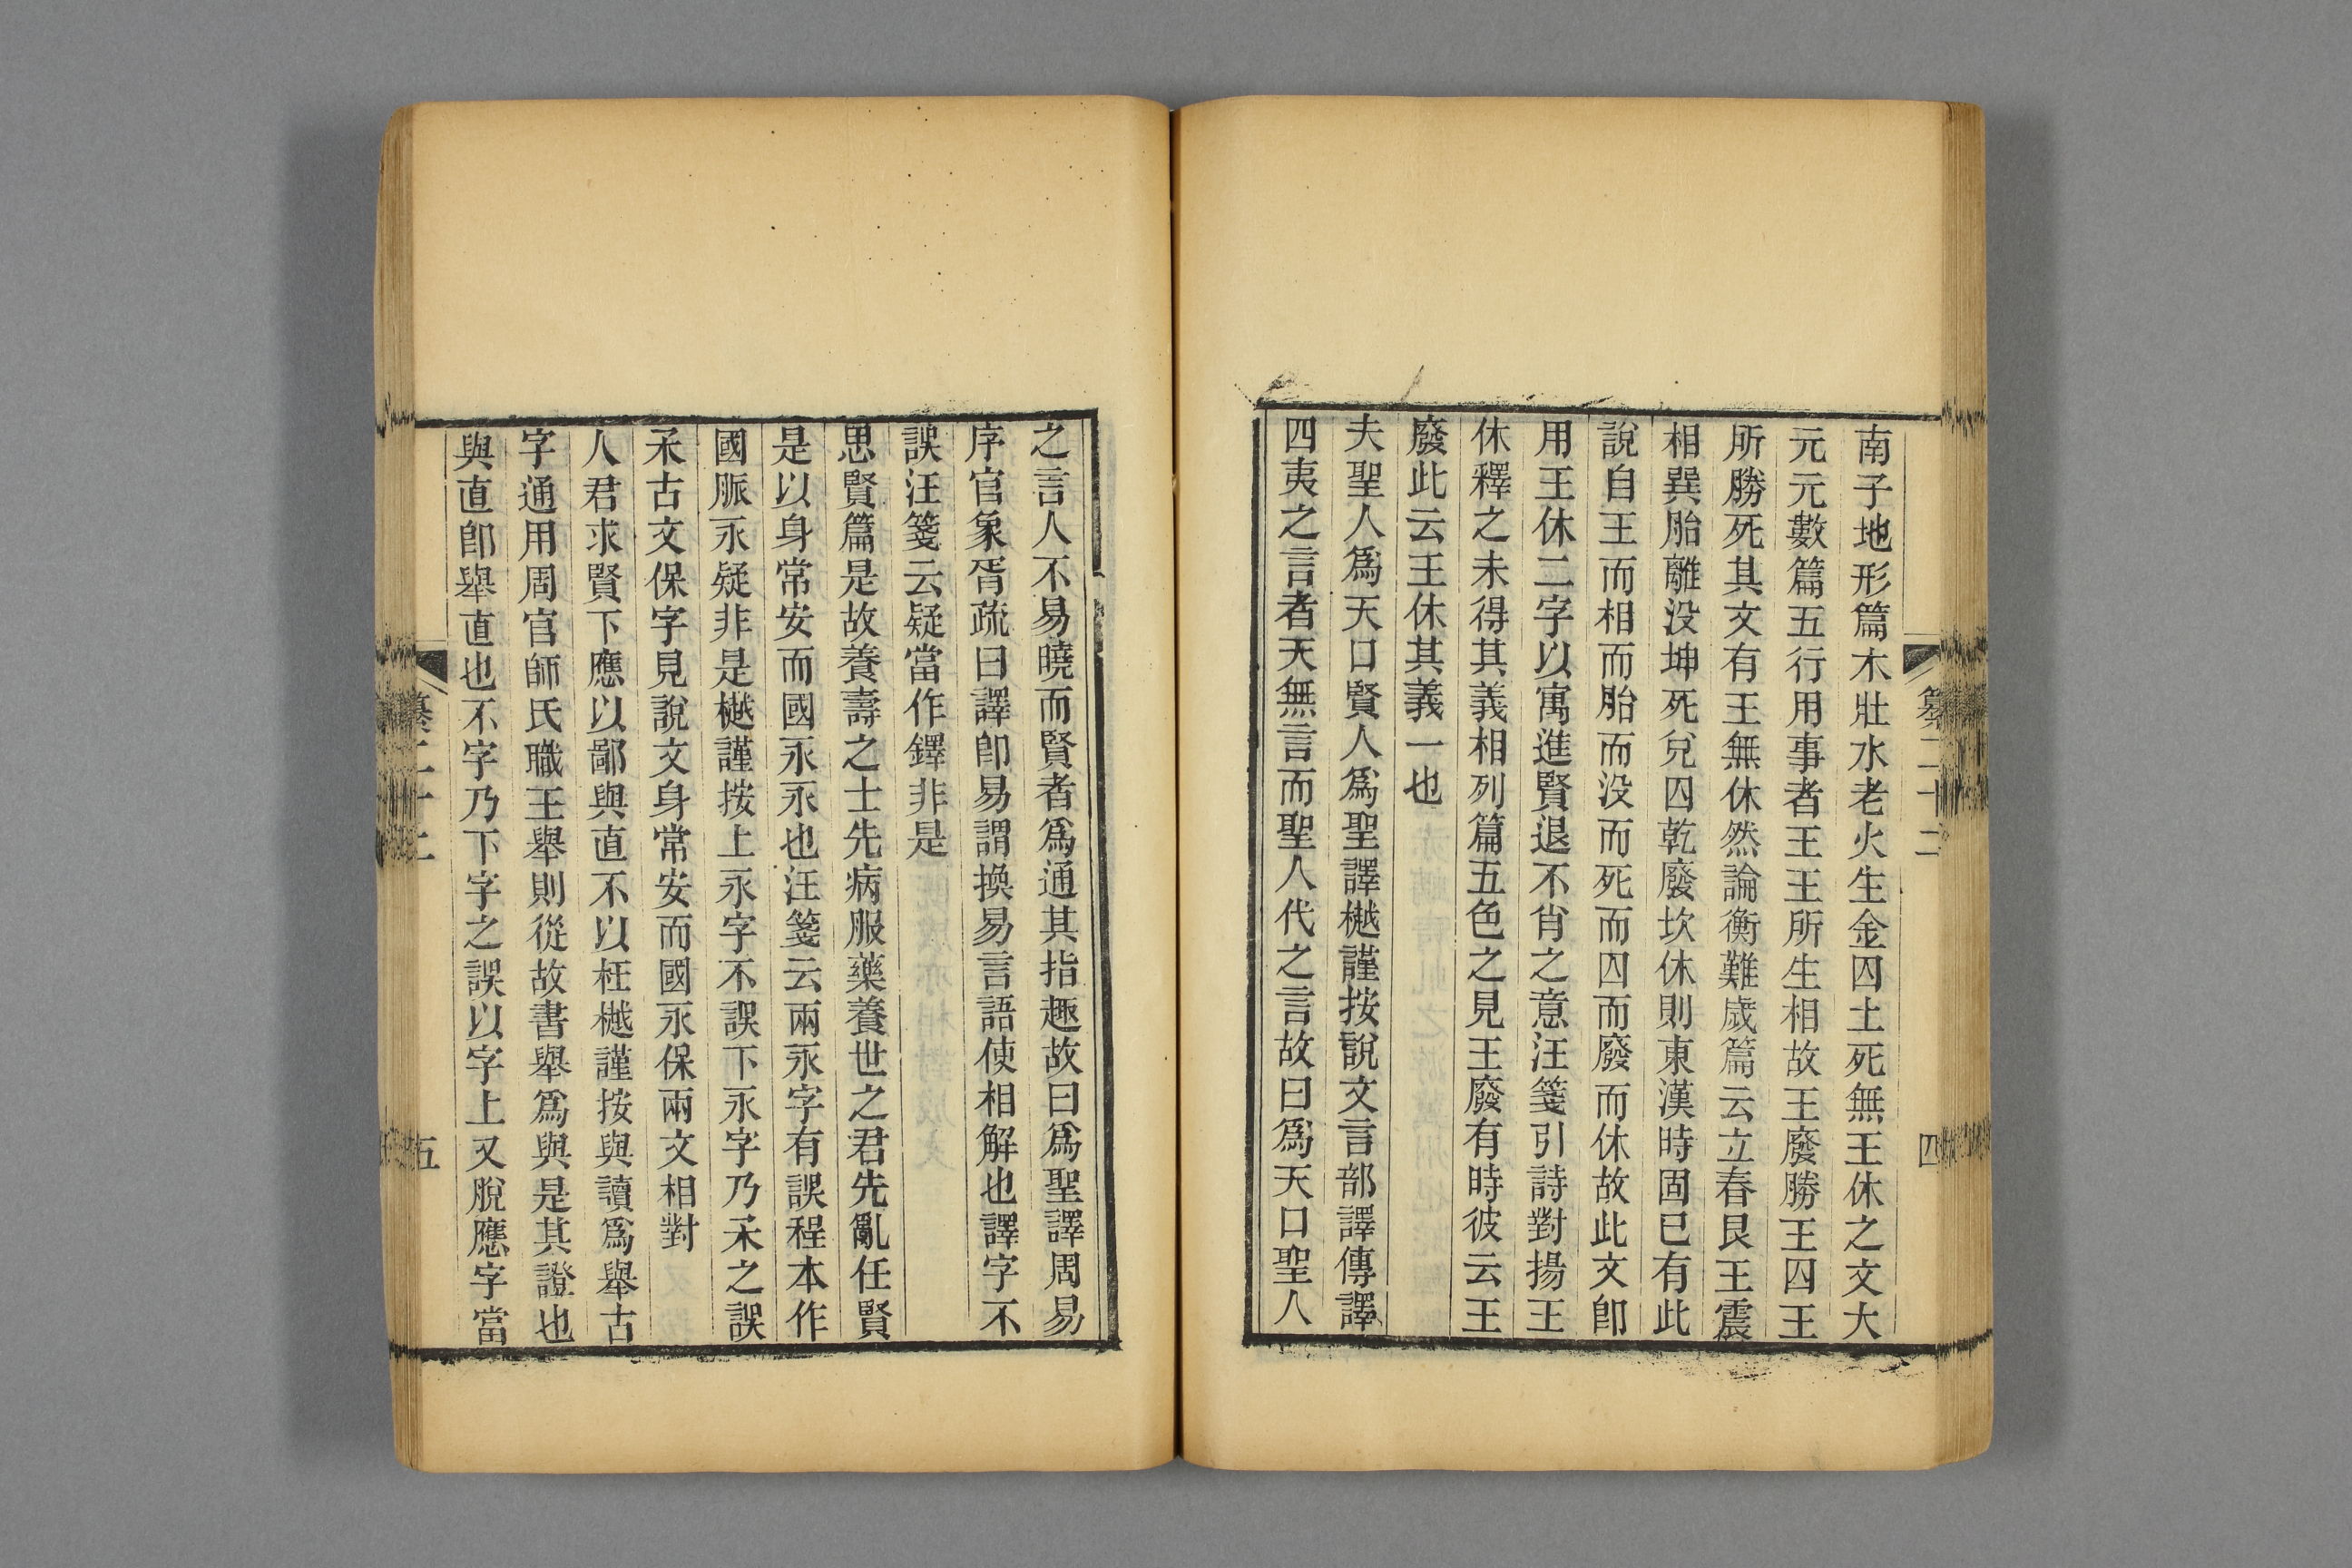 南子地形篇木壯水老火生金囚土死無王休之文大
元元數篇五行用事者王王所生相故王廢勝王囚王
所勝死其文有王無休然論衡難歲篇云立春艮王震
相巽胎離没坤死兌囚乾廢坎休則東漢時固已有此
說自王而相而胎而没而死而囚而廢而休故此文卽
用王休二字以寓進賢退不肖之意汪箋引詩對揚王
休釋之未得其義相列篇五色之見王廢有時彼云王
廢此云王休其義一也
夫聖人爲天口賢人爲聖譯樾謹按說文言部譯傳譯
四夷之言者天無言而聖人代之言故曰爲天口聖人
纂二十二
四
之言人不易曉而賢者爲通其指趣故曰爲聖譯周易
序官象胥疏曰譯卽易謂換易言語使相解也譯字不
誤汪箋云疑當作鐸非是
思賢篇是故養壽之士先病服藥養世之君先亂任賢
是以身常安而國永永也汪箋云兩永字有誤程本作
國脈永疑非是樾謹按上永字不誤下永字乃禾之誤
禾古文保字見說文身常安而國永保兩文相對
人君求賢下應以鄙與直不以枉樾謹按與讀爲舉古
字通用周官師氏職王舉則從故書舉爲與是其證也
與直卽舉直也不字乃下字之誤以字上又脫應字當
纂二十二
五